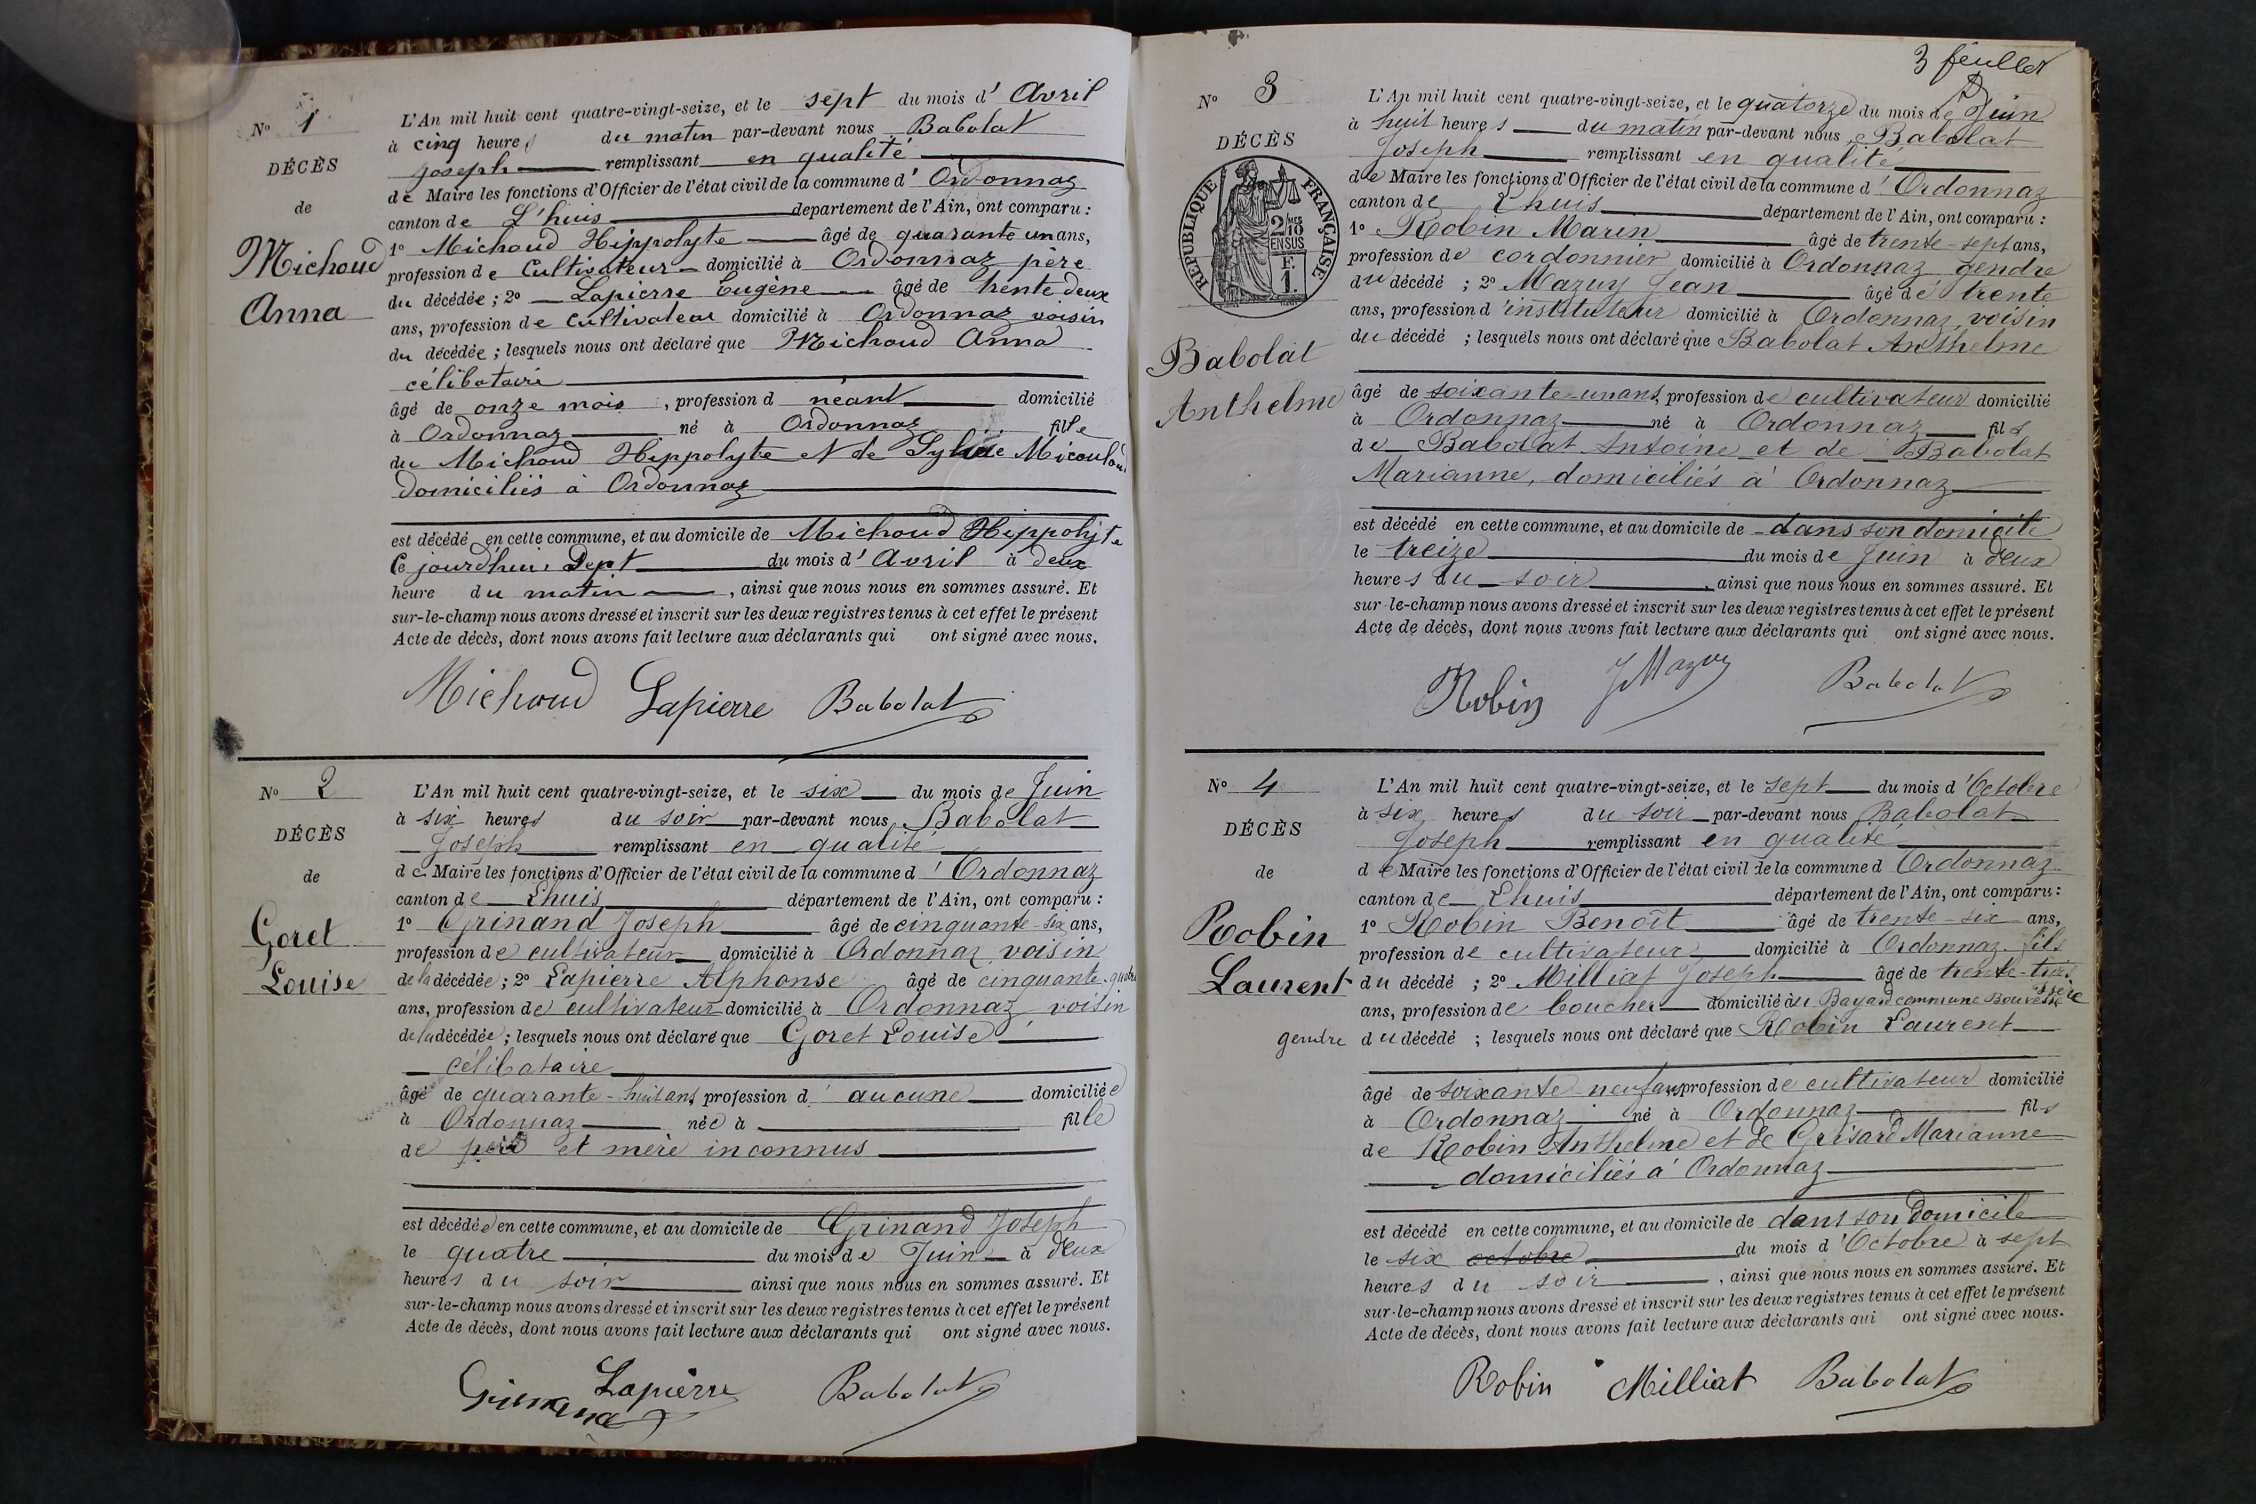 Nº 1
DÉCÈS
de
Michoud
Anna
L'An mil huit cent quatre-vingt-seize, et le sept du mois d' Avril
à cinq heures du matin par-devant nous Babolat
Joseph remplissant en qualité
de Maire les fonctions d'Officier de l'état civil de la commune d' Ordonnaz
canton de L'huis département de l'Ain, ont comparu :
1º Michoud Hippolyte âgé de quarante un ans,
profession de Cultivateur domicilié à Ordonnaz père
du décédée ; 2º Lapierre Eugène âgé de trente deux
ans, profession de cultivateur domicilié à Ordonnaz voisin
du décédée ; lesquels nous ont déclaré que Michoud Anna
célibataire
âgé de onze mois, profession d néant domicilié
à Ordonnaz né à Ordonnaz fille
du Michoud Hippolyte et de Sylvie Micoulou
domiciliés à Ordonnaz
est décédé en cette commune, et au domicile de Michoud Hippolyte
Ce jourd'hui Sept du mois d' Avril à deux
heure du matin, ainsi que nous nous en sommes assuré. Et
sur-le-champ nous avons dressé et inscrit sur les deux registres tenus à cet effet le présent
Acte de décès, dont nous avons fait lecture aux déclarants qui ont signé avec nous.
Michoud Lapierre Babolat
Nº 2
DÉCÈS
de
Goret
Louise
L'An mil huit cent quatre-vingt-seize, et le six du mois de Juin
à six heures du soir par-devant nous Babolat
Joseph remplissant en qualité
de Maire les fonctions d'Officier de l'état civil de la commune d' Ordonnaz
canton de Lhuis département de l'Ain, ont comparu :
1º Grinand Joseph âgé de cinquante-six ans,
profession de cultivateur domicilié à Ordonnaz voisin
de la décédée ; 2º Lapierre Alphonse âgé de cinquante-quatre
ans, profession de cultivateur domicilié à Ordonnaz voisin
de la décédée ; lesquels nous ont déclaré que Goret Louise
célibataire
âgé de quarante-huit ans, profession d' aucune domiciliée
à Ordonnaz née à fille
de père et mère inconnus
est décédée en cette commune, et au domicile de Grinand Joseph
le quatre du mois de Juin à deux
heures du soir ainsi que nous nous en sommes assuré. Et
sur-le-champ nous avons dressé et inscrit sur les deux registres tenus à cet effet le présent
Acte de décès, dont nous avons fait lecture aux déclarants qui ont signé avec nous.
Grinand Lapierre Babolat
3 feuillet
Nº 3
DÉCÈS
RÉPUBLIQUE FRANÇAISE
2/10 EN SUS
F. 1.
Babolat
Anthelme
L'An mil huit cent quatre-vingt-seize, et le quatorze du mois de Juin
à huit heures du matin par-devant nous Babolat
Joseph remplissant en qualité
de Maire les fonctions d'Officier de l'état civil de la commune d' Ordonnaz
canton de Lhuis département de l'Ain, ont comparu :
1º Robin Marin âgé de trente-sept ans,
profession de cordonnier domicilié à Ordonnaz gendre
du décédé ; 2º Mazuy Jean âgé de trente
ans, profession d'instituteur domicilié à Ordonnaz, voisin
du décédé ; lesquels nous ont déclaré que Babolat Anthelme
âgé de soixante-un ans, profession de cultivateur domicilié
à Ordonnaz né à Ordonnaz fils
de Babolat Antoine et de Babolat
Marianne, domiciliés à Ordonnaz
est décédé en cette commune, et au domicile de dans son domicile
le treize du mois de Juin à deux
heures du soir, ainsi que nous nous en sommes assuré. Et
sur-le-champ nous avons dressé et inscrit sur les deux registres tenus à cet effet le présent
Acte de décès, dont nous avons fait lecture aux déclarants qui ont signé avec nous.
Robin J Mazuy Babolat
Nº 4
DÉCÈS
de
Robin
Laurent
gendre
L'An mil huit cent quatre-vingt-seize, et le sept du mois d'Octobre
à six heures du soir par-devant nous Babolat
Joseph remplissant en qualité
de Maire les fonctions d'Officier de l'état civil de la commune d' Ordonnaz
canton de Lhuis département de l'Ain, ont comparu :
1º Robin Benoît âgé de trente-six ans,
profession de cultivateur domicilié à Ordonnaz fils
du décédé ; 2º Milliat Joseph âgé de trente-trois
ans, profession de boucher domicilié au Bayard commune Bouvesse Isère
du décédé ; lesquels nous ont déclaré que Robin Laurent
âgé de soixante-neuf ans, profession de cultivateur domicilié
à Ordonnaz né à Ordonnaz fils
de Robin Anthelme et de Grisard Marianne
domiciliés à Ordonnaz
est décédé en cette commune, et au domicile de dans son domicile
le six octobre du mois d'Octobre à sept
heures du soir, ainsi que nous nous en sommes assuré. Et
sur-le-champ nous avons dressé et inscrit sur les deux registres tenus à cet effet le présent
Acte de décès, dont nous avons fait lecture aux déclarants qui ont signé avec nous.
Robin Milliat Babolat